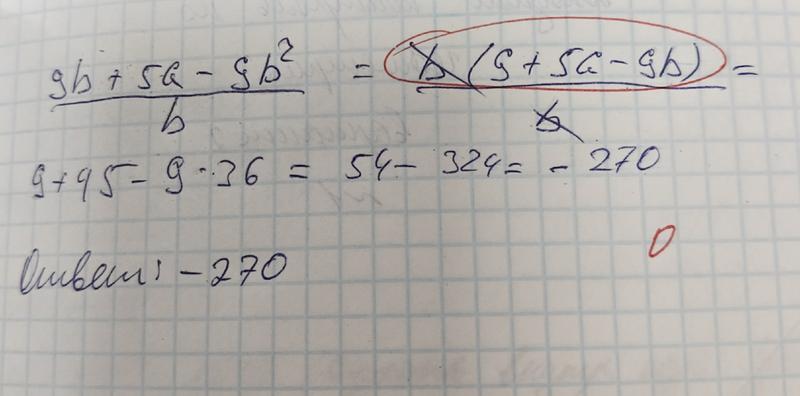 (9b + 5a - 9b²) / b = b(9 + 5a - 9b) / b =
9 + 45 - 9 · 36 = 54 - 324 = - 270
0
Ответ: - 270